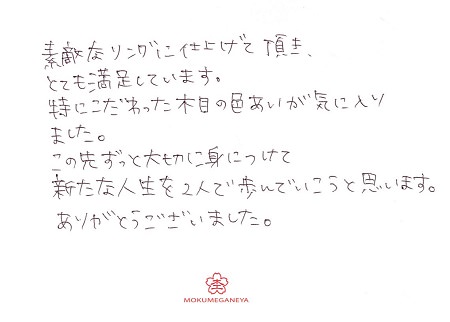 素敵なリングに仕上げて頂き、
とても満足しています。
特にこだわった木目の色あいが気に入り
ました。
この先ずっと大切に身につけて
新たな人生を2人で歩んでいこうと思います。
ありがとうございました。
MOKUMEGANEYA